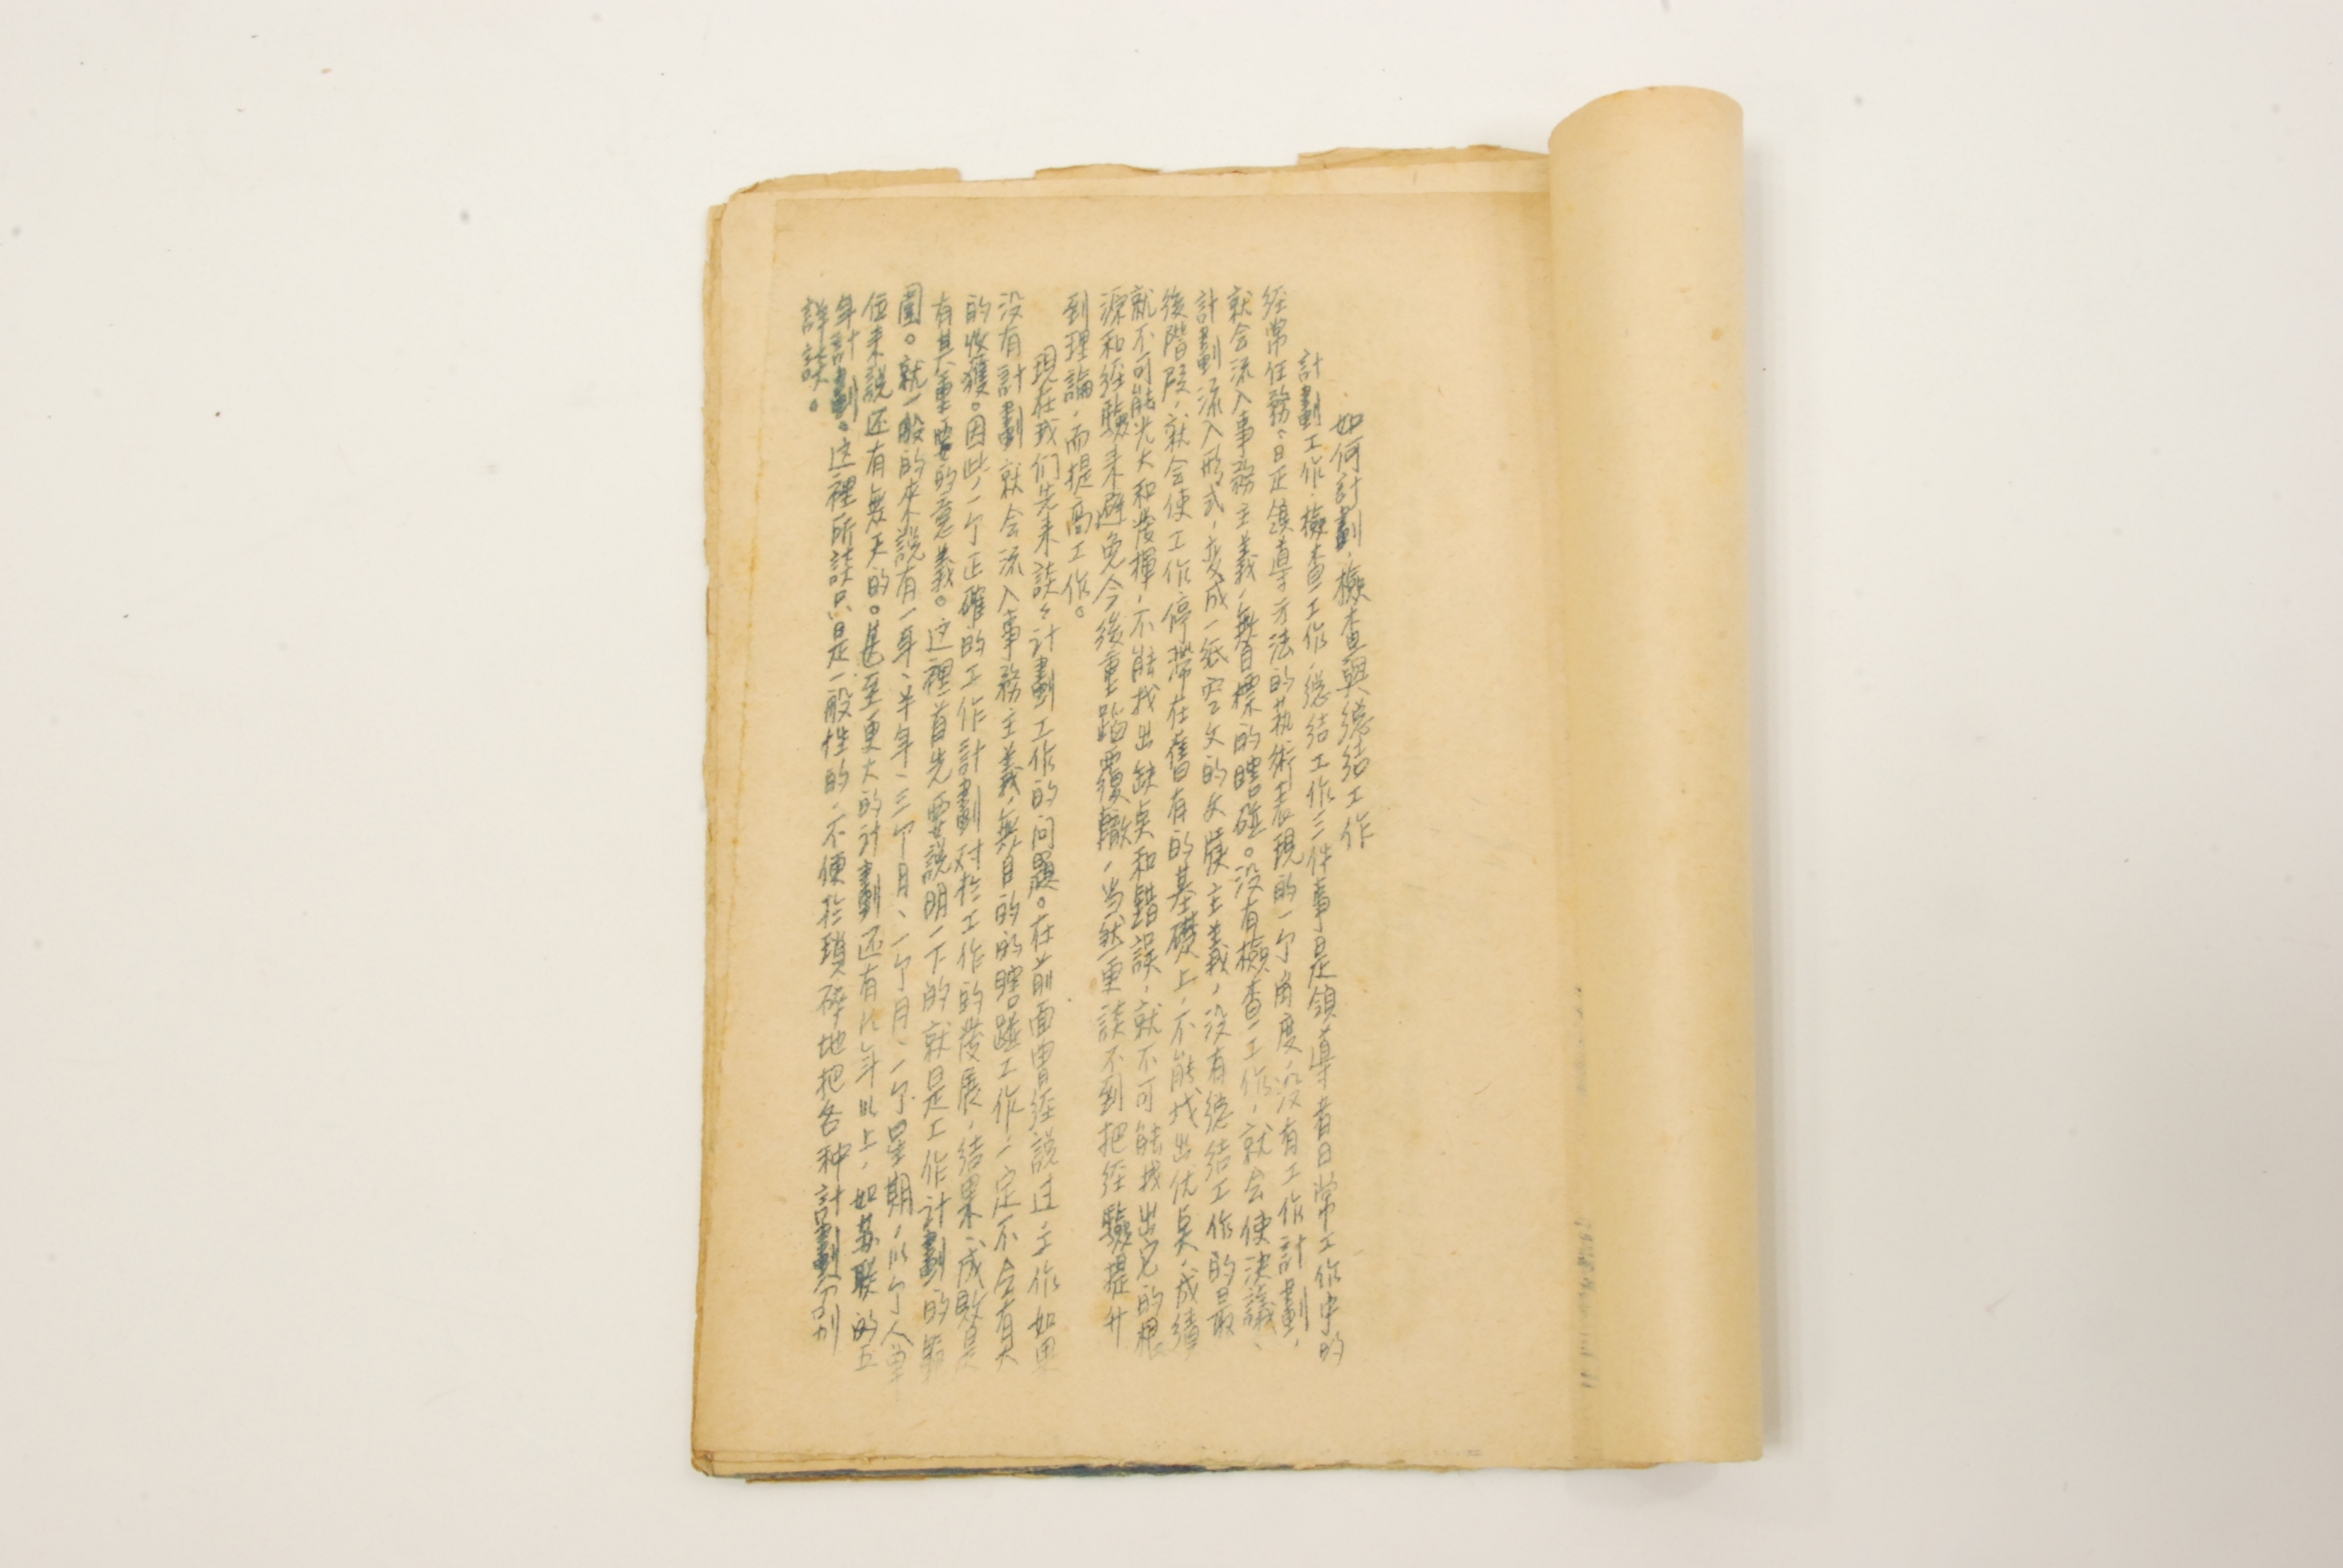 如何計劃，檢查與總结工作
計劃工作，檢查工作，總结工作三件事是領導者日常工作中的
経常任務，日正領導方法的藝術表現的一个角度，没有工作計劃，
就会流入事務主義，無目標的瞎碰。没有檢查工作，就会使決議、
計劃流入形式，变成一紙空文的文牘主義，没有總结工作的最
後階段，就会使工作停滯在舊有的基礎上，不能找出优奌，成績
就不可能光大和發揮，不能找出缺奌和錯誤，就不可能找出它的根
源和経驗来避免今後重蹈覆轍，当然更談不到把経驗提升
到理論，而提高工作。
現在我们先来談々計劃工作的问題。在前面曾经説过，工作如果
没有計劃就会流入事務主義，無目的的瞎碰工作，一定不会有大
的收獲。因此，一个正確的工作計劃対於工作的發展，结果，成敗是
有其重要的意義。这裡首先要説明一下的就是工作计劃的範
圍。就一般的來説有一年、半年、三个月、一个月、一个星期，以个人單
位来説还有每天的。甚至更大的计劃还有几年以上，如苏联的五
年計劃。这裡所談只是一般性的，不便於瑣碎地把各种計劃分别
詳談。